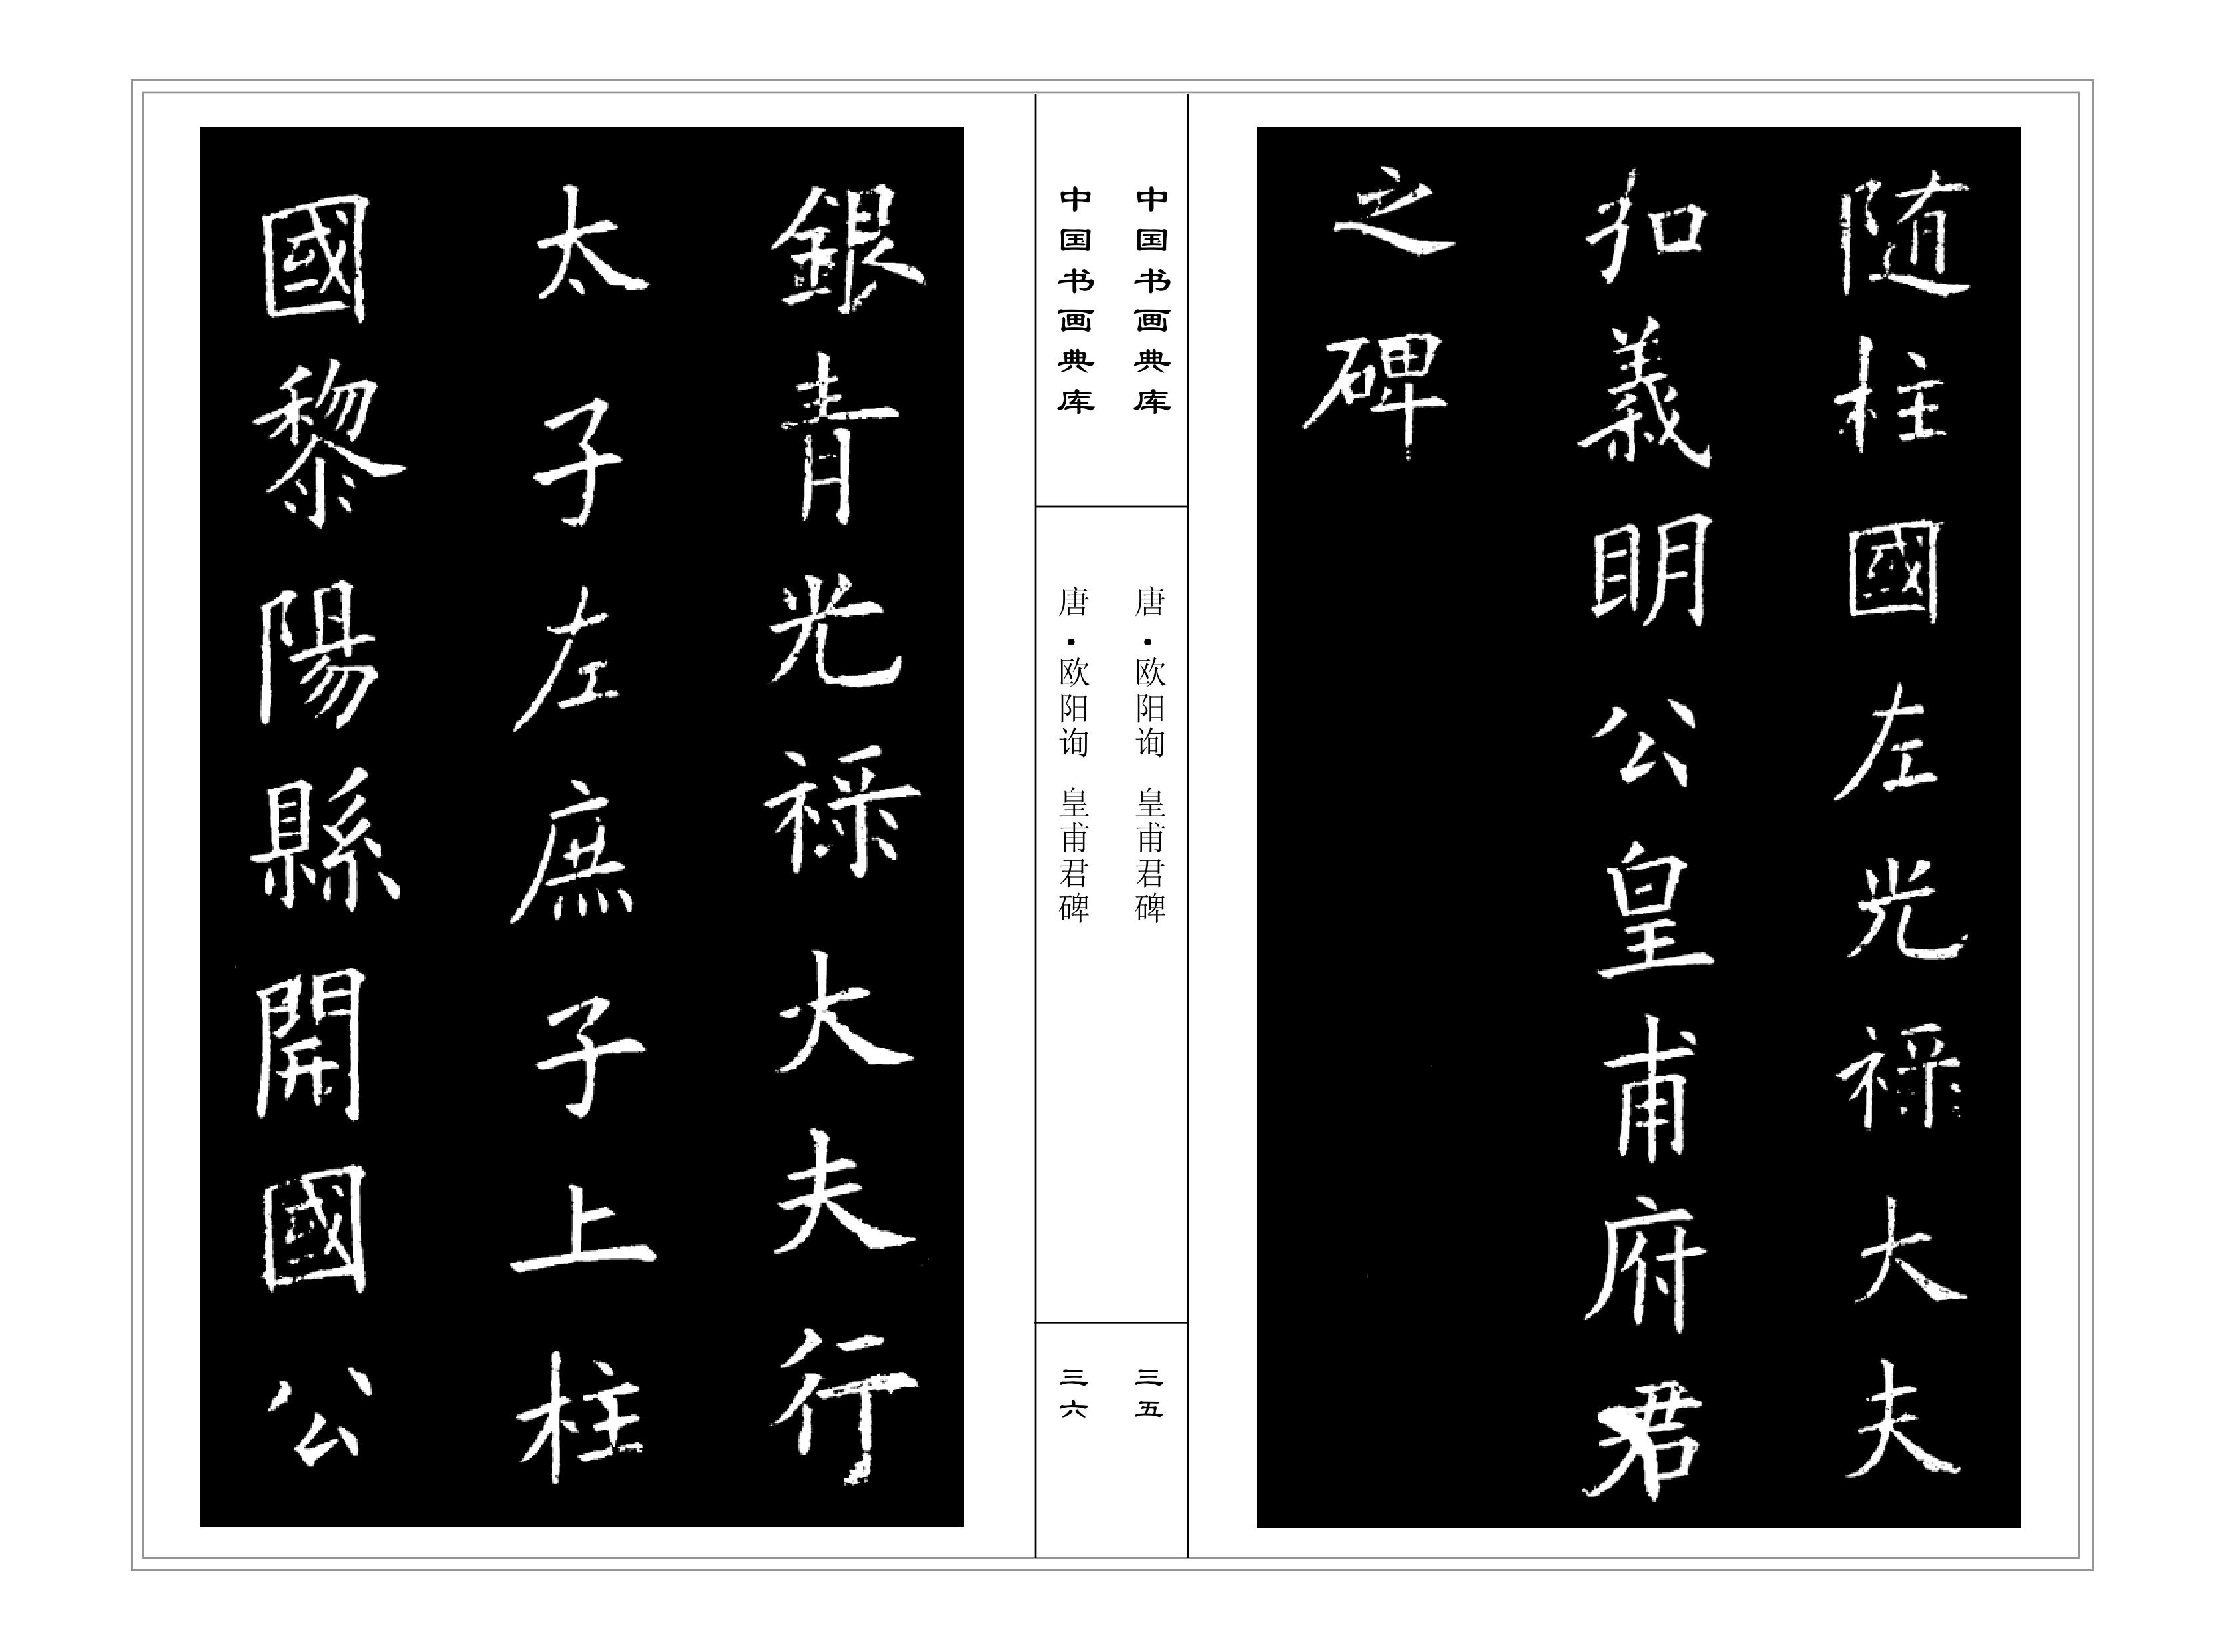 随柱國左光禄大夫
扣義明公皇甫府君
之碑
中国书画典库
唐·欧阳询 皇甫君碑
三五
中国书画典库
唐·欧阳询 皇甫君碑
三六
銀青光禄大夫行
太子左庶子上柱
國黎陽縣開國公